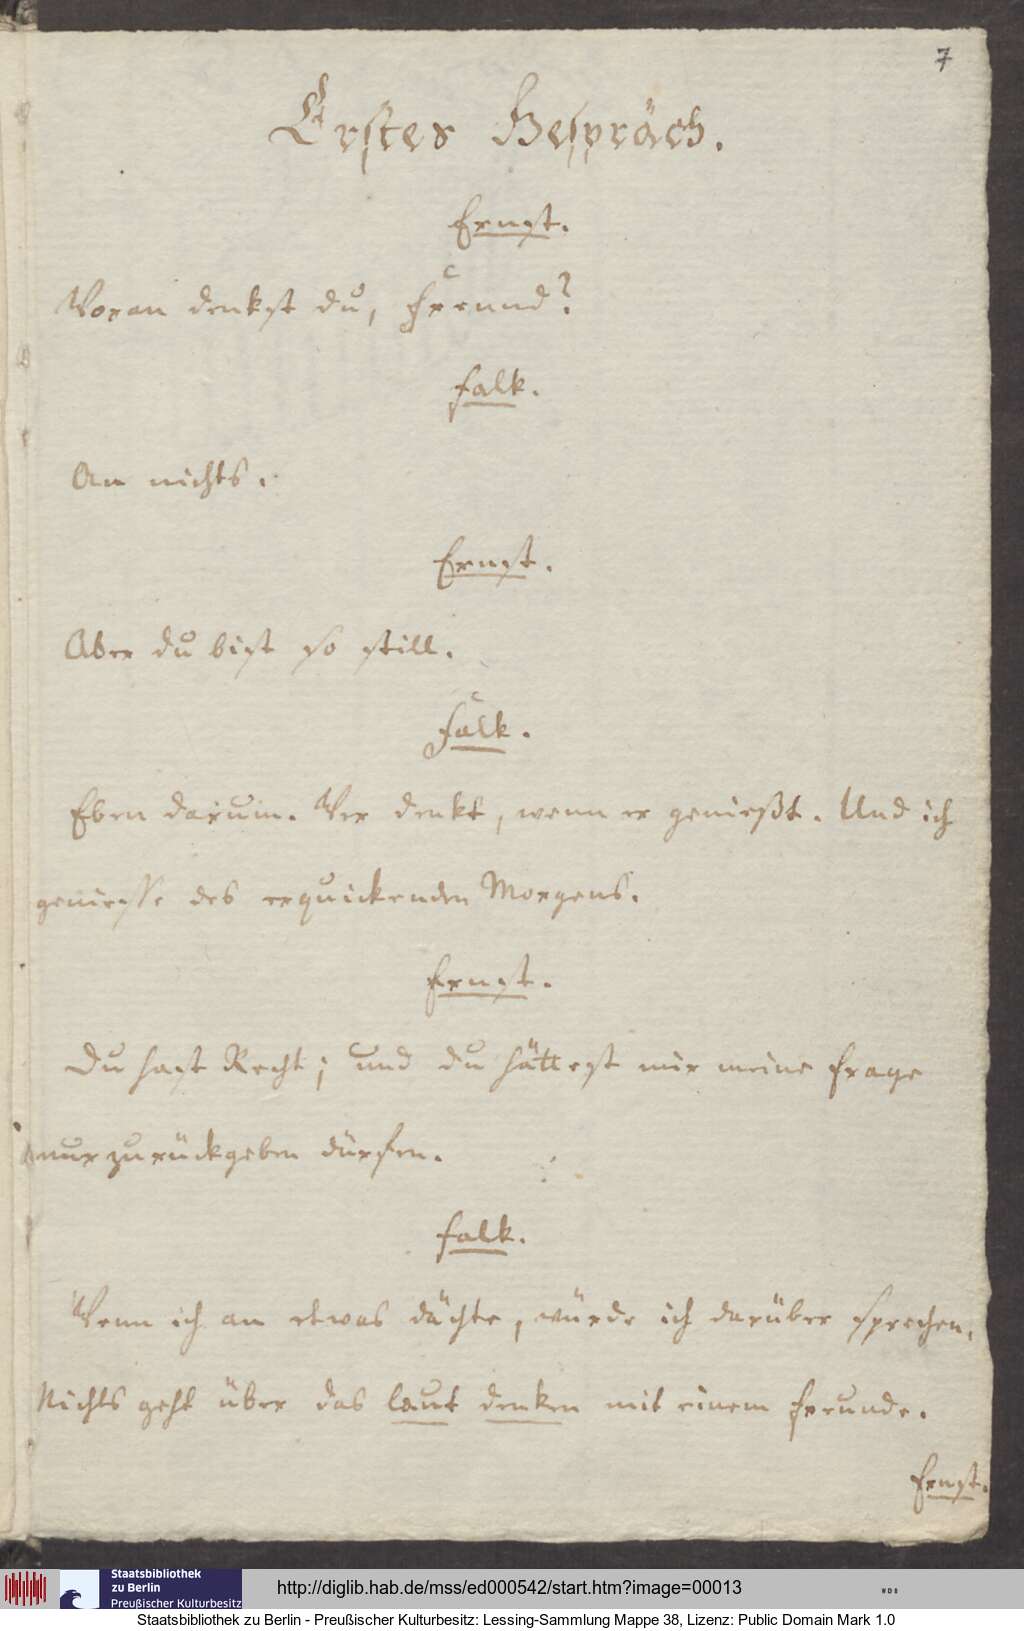 7
Erstes Gespräch.
Ernst.
Woran denkst du, Freund?
Falk.
An nichts.
Ernst.
Aber du bist so still.
Falk.
Eben darum. Wer denkt, wenn er genießt. Und ich
geniesse des erquickenden Morgens.
Ernst.
Du hast Recht; und du hättest mir meine Frage
nur zurückgeben dürfen.
Falk.
Wenn ich an etwas dächte, würde ich darüber sprechen.
Nichts geht über das laut denken mit einem Freunde.
Ernst.
Staatsbibliothek
zu Berlin
Preußischer Kulturbesitz
http://diglib.hab.de/mss/ed000542/start.htm?image=00013
WDB
Staatsbibliothek zu Berlin - Preußischer Kulturbesitz: Lessing-Sammlung Mappe 38, Lizenz: Public Domain Mark 1.0